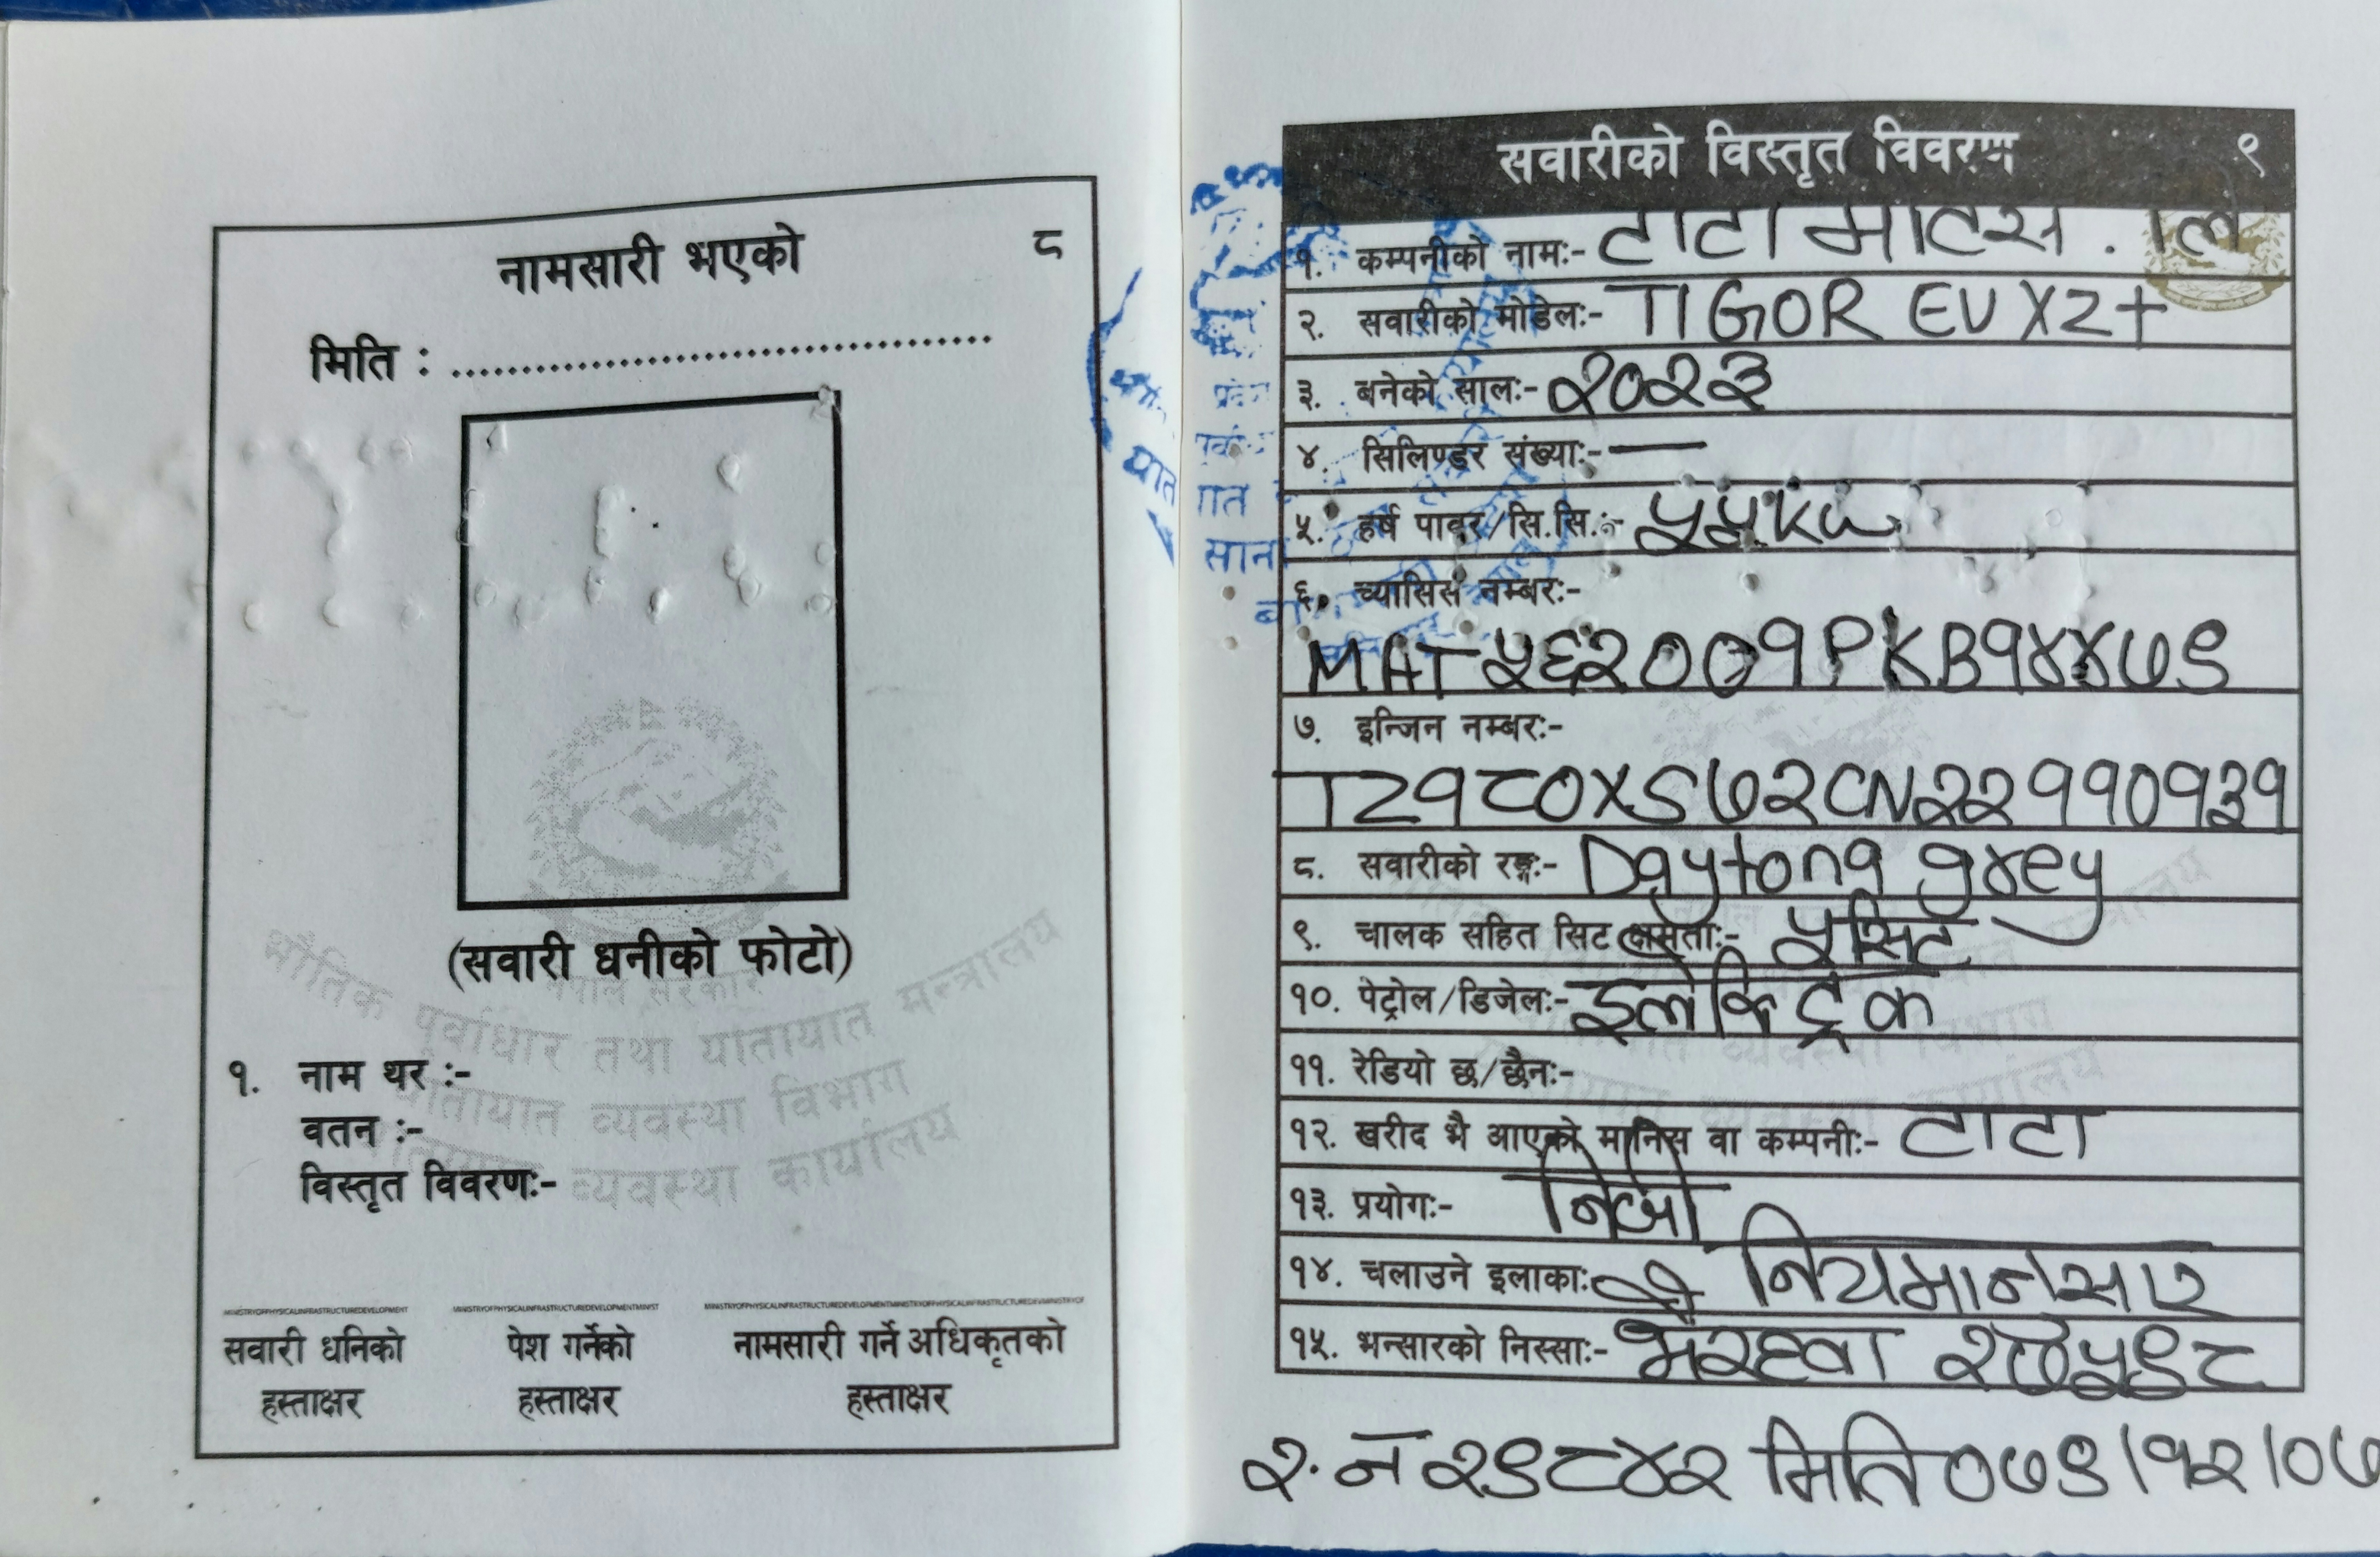 नामसारी भएको ८
मिति : ........................................
(सवारी धनीको फोटो)
नेपाल सरकार
भौतिक पूर्वाधार तथा यातायात मन्त्रालय
यातायात व्यवस्था विभाग
यातायात व्यवस्था कार्यालय
१. नाम थर :-
वतन :-
विस्तृत विवरण:-
सवारी धनिको हस्ताक्षर
पेश गर्नेको हस्ताक्षर
नामसारी गर्ने अधिकृतको हस्ताक्षर
सवारीको विस्तृत विवरण ९
१. कम्पनीको नाम:- टाटा मोटर्स . लि
२. सवारीको मोडेल:- TIGOR EV XZ+
३. बनेको साल:- २०२३
४. सिलिण्डर संख्या:- —
५. हर्ष पावर/सि.सि.:- ५५KW
६. च्यासिस नम्बर:-
MAT५६२००१PKB१४४७९
७. इन्जिन नम्बर:-
TZ१८०XS७२CN२२११०१३१
८. सवारीको रङ्ग:- Daytona grey
९. चालक सहित सिट क्षमता:- ५ सिट
१०. पेट्रोल/डिजेल:- इलेक्ट्रिक
११. रेडियो छ/छैन:-
१२. खरीद भै आएको मानिस वा कम्पनी:- टाटा
१३. प्रयोग:- निजी
१४. चलाउने इलाका: नियमानुसार
१५. भन्सारको निस्सा:- भैरहवा
र. नं २९८४२ मिति ०७९/१२/०७